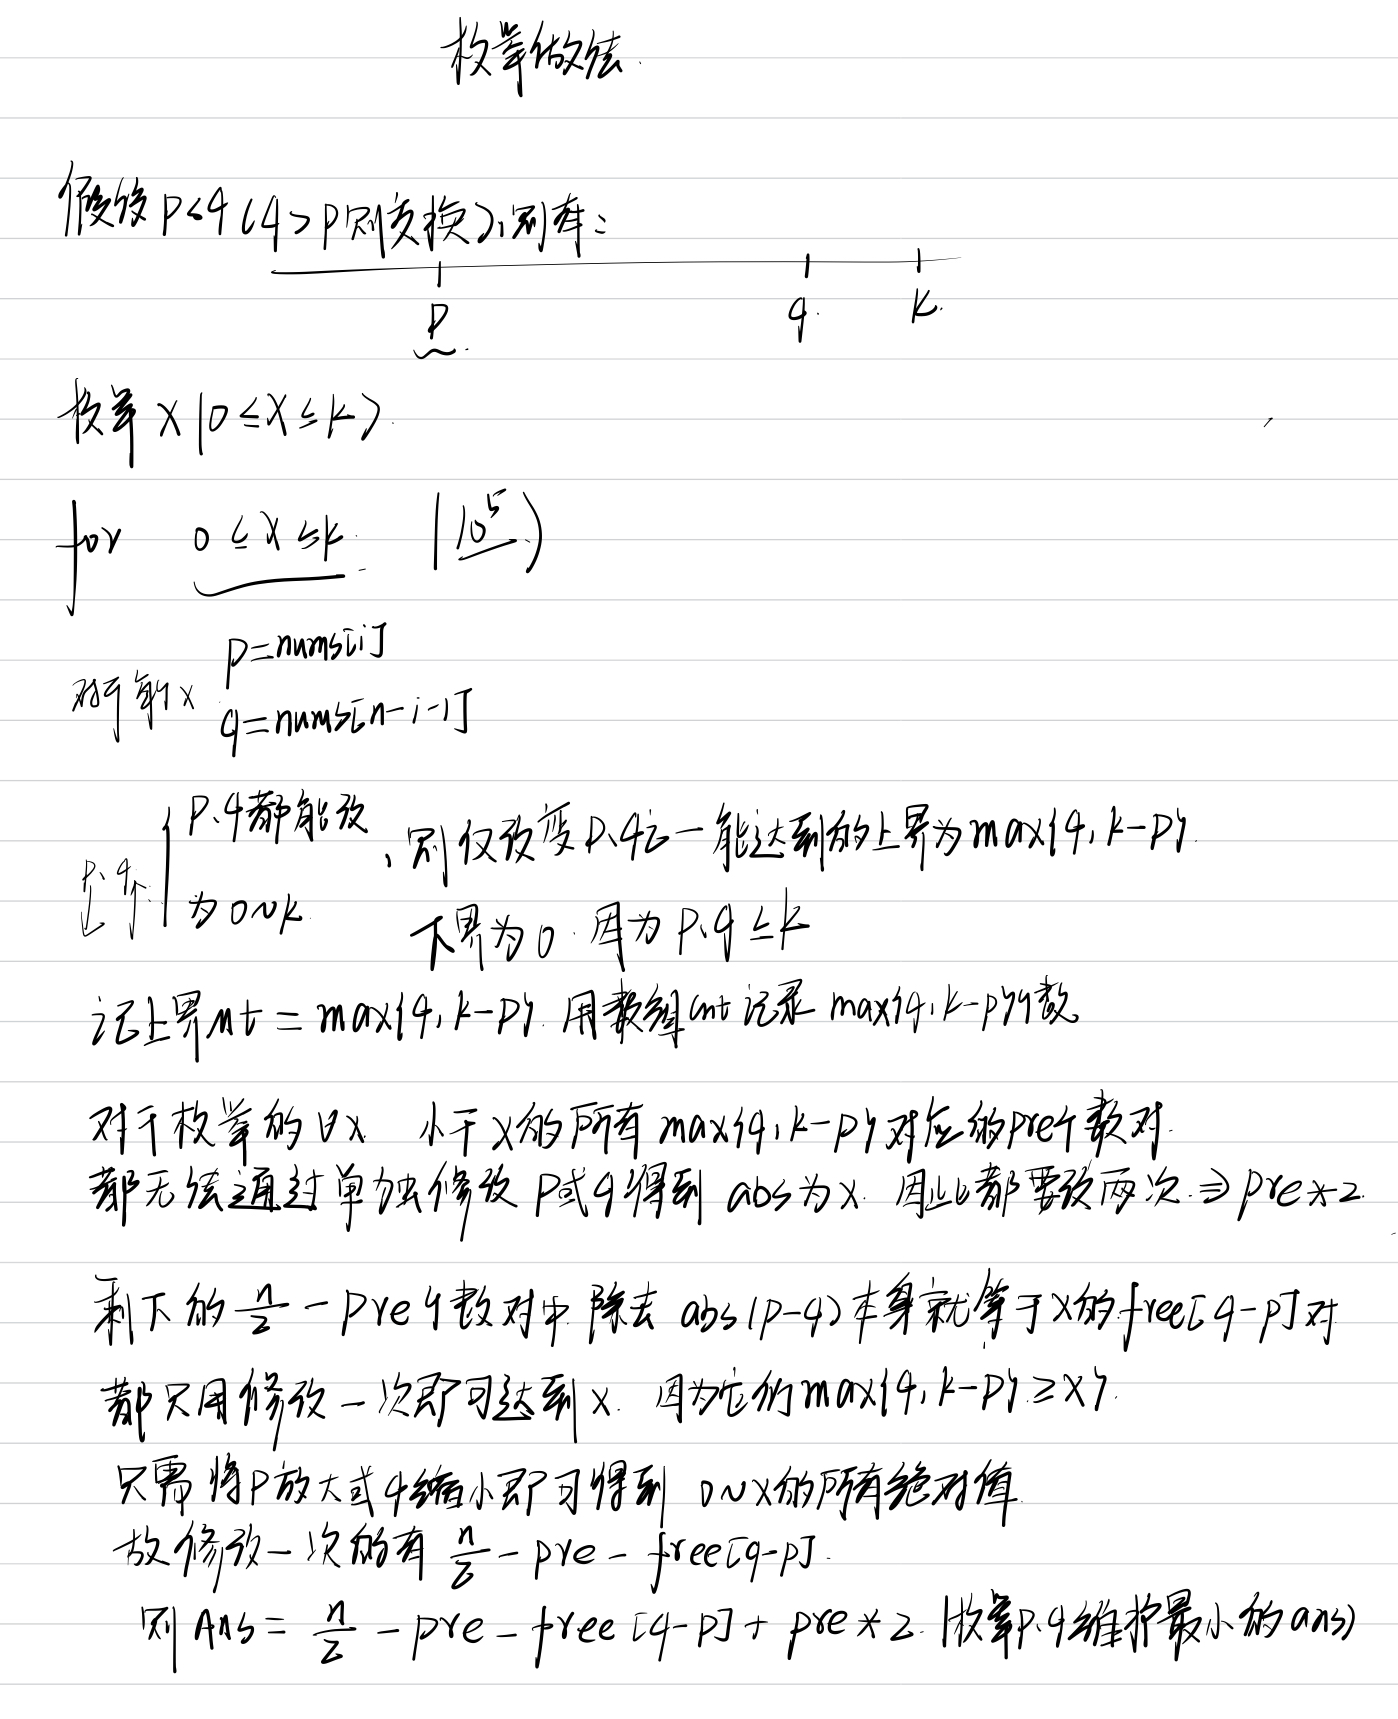 枚举做法.
假设 p<q (q>p则交换), 则有:
p q. k.
枚举 x (0≤x≤k).
for 0≤x≤k. (10^5)
p=nums[i]
对于每个x
q=nums[n-i-1]
p.q都能改, 则仅改变p.q之一能达到的上界为max{q, k-p}.
p. q.
为0~k. 下界为0. 因为 p.q≤k
记上界 = max{q, k-p}. 用数组cnt记录 max{q, k-p}个数.
对于枚举的∀x 小于x的所有 max{q, k-p}对应的pre个数对.
都无法通过单独修改 p或q得到 abs为x. 因此都要改两次. ⇒ pre*2.
剩下的 n/2 - pre个数对中. 除去 abs(p-q)本身就等于x的free[q-p]对
都只用修改一次即可达到x. 因为它们max{q, k-p}≥x}.
只需将p放大或q缩小即可得到 0~x的所有绝对值.
故修改一次的有 n/2 - pre - free[q-p].
则 Ans = n/2 - pre - free[q-p] + pre*2. (枚举p.q维护最小的ans)